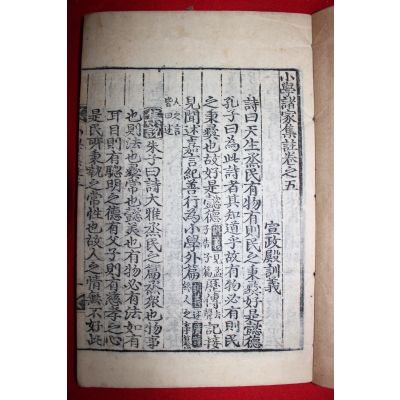 小學諸家集註卷之五
宣政殿訓義
詩曰天生烝民有物有則民之秉彝好是懿德
孔子曰爲此詩者其知道乎故有物必有則民
之秉彝也故好是懿德
歷傳記接
見聞述嘉言紀善行爲小學外篇
人之言
皆曰述
朱子曰詩大雅烝民之篇烝衆也物事
也則法也彝常也懿美也有物必有法如有
耳目則有聰明之德有父子則有慈孝之心
是民所秉執之常性也故人之情無不好此